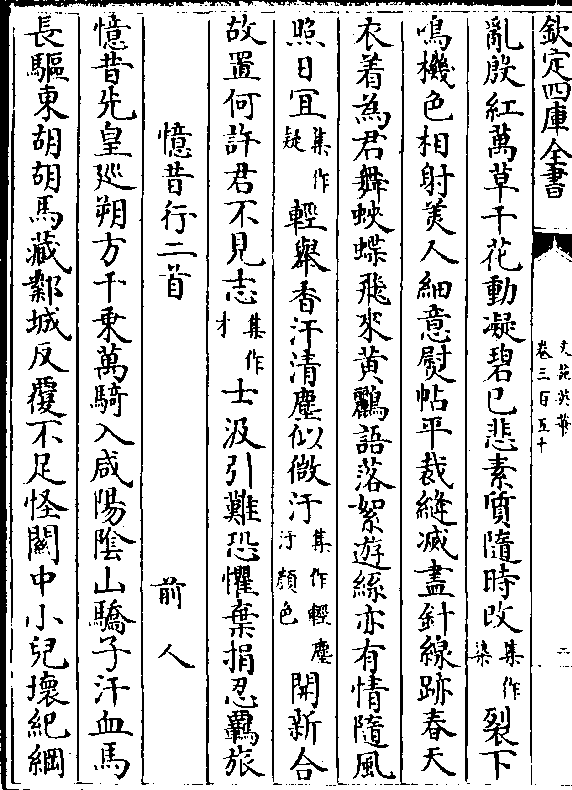 欽定四庫全書
文苑英華
卷三百五十
二
亂殷紅萬草千花動凝碧已悲素質隨時改集作染裂下
鳴機色相射美人細意熨帖平裁縫滅盡針線跡春天
衣着為君舞蛺蝶飛來黃鸝語落絮遊絲亦有情隨風
照日宜集作疑輕舉香汗清塵似微汙集作輕塵汙顏色開新合
故置何許君不見志集作才士汲引難恐懼棄捐忍羈旅
憶昔行二首　前人
憶昔先皇巡朔方千乘萬騎入咸陽陰山驕子汗血馬
長驅東胡胡馬藏鄴城反覆不足怪關中小兒壞紀綱